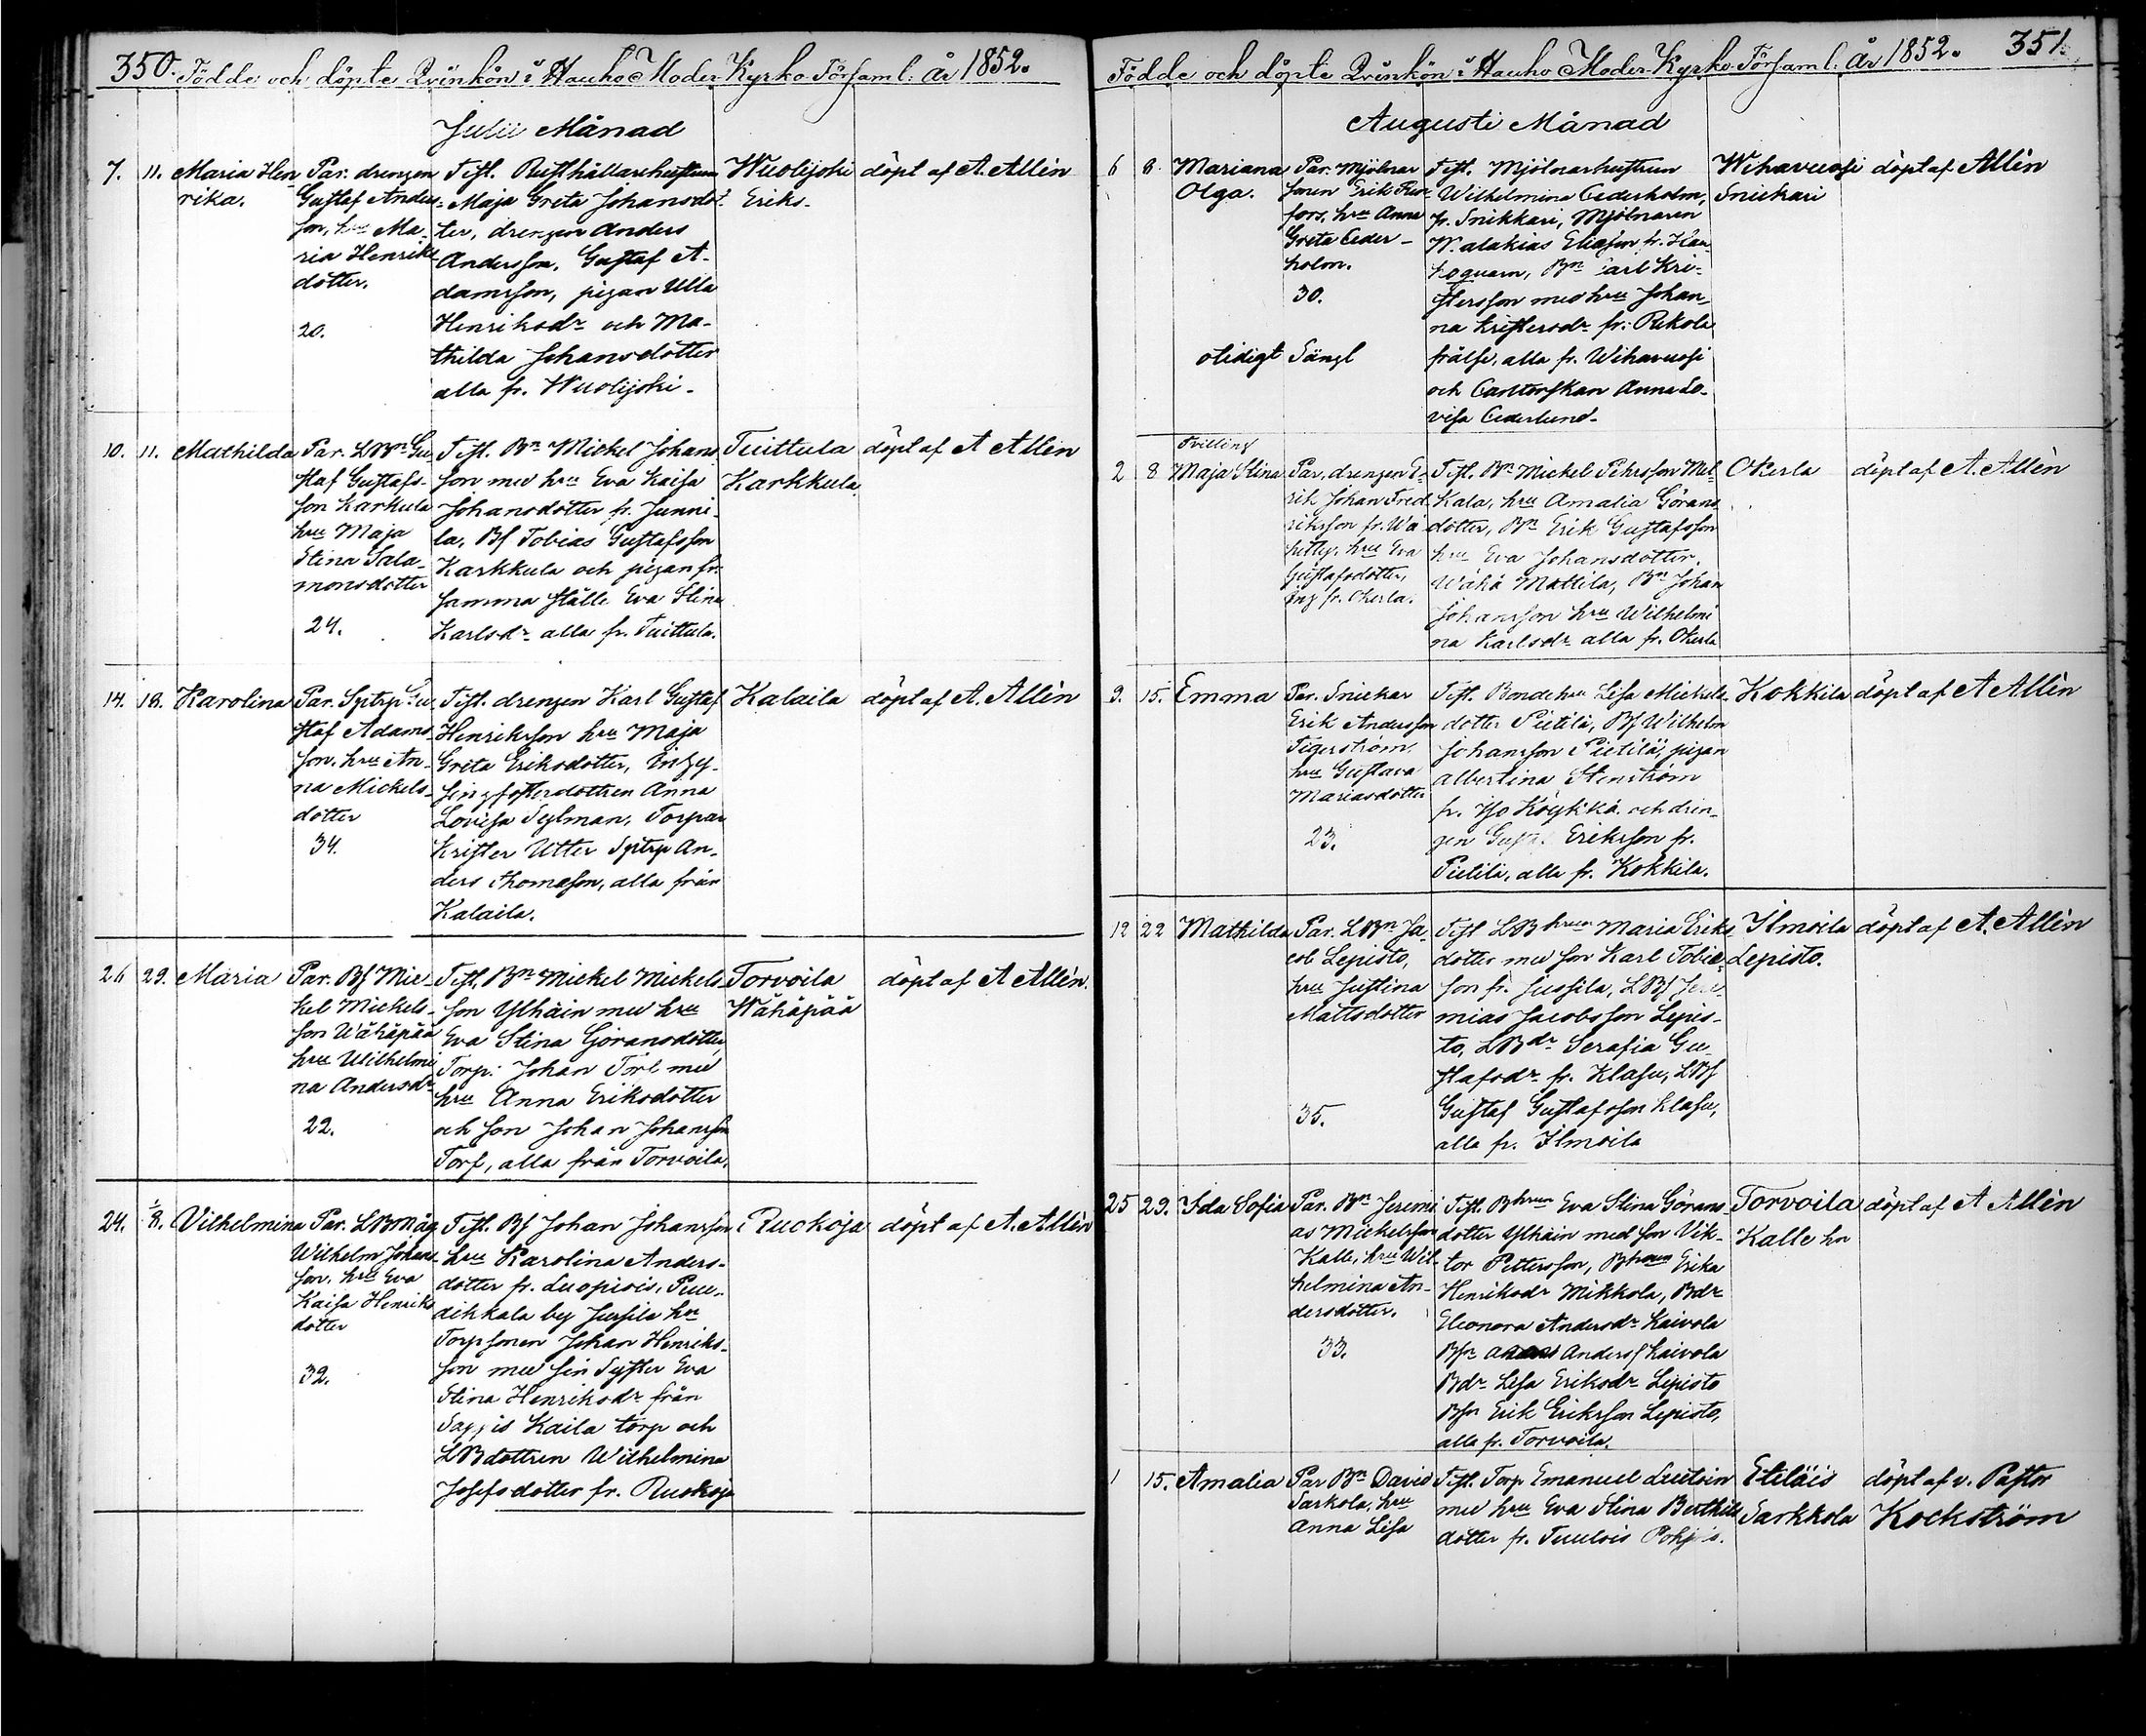 350. Födde och döpte Qvinkön i Hauho Moder-Kyrko-Församl: År 1852.
Julii Månad
7. 11. Maria Hen-
rika.
Par. drengen
Gustaf Anders-
son, hru Ma-
ria Henriks
dotter.
20.
Test. Rusthållarehustrun
Maja Greta Johansdot-
ter, drengen Anders
Andersson, Gustaf A-
damsson, pigan Ulla
Henriksdr och Ma-
thilda Johansdotter
alla fr. Wuolijoki.
Wuolijoki
Eriks.
döpt af A. Allén
10. 11. Mathilda
Par. LBn Gu
staf Gustafs-
son Karkula
hru Maja
Stina Sala-
monsdotter
24.
Test. Bn Mickel Johans
son med hru Eva Kaisa
Johansdotter fr. Junni-
la, Bs Tobias Gustafsson
Karkkula och pigan fr.
samma ställe Eva Stina
Karlsdr alla fr. Tuittula.
Tuittula
Karkkula
döpt af A Allén
14. 18. Karolina
Par. Sptrp Gu
staf Adams-
son, hru An-
na Mickels-
dotter
34.
Test. drengen Karl Gustaf
Henriksson hru Maja
Greta Eriksdotter,
Anna
Lovisa Sylman, Torpar
Krister Utter Sptrp An-
ders Thomasson, alla från
Kalaila.
Kalaila
döpt af A. Allén
26 29. Maria
Par. Bs Mic-
kel Mickels-
son Wähäpää
hru Wilhelmi
na Andersdr
22.
Test. Bn Mickel Mickels-
son Ylhäin med hru
Eva Stina Göransdotter
Torp: Johan Torf med
hru Anna Eriksdotter
och son Johan Johansson
Torf, alla från Torvoila.
Torvoila
Wähäpää
döpt af A Allén.
24. 1/8. Vilhelmina
Par. LBMåg
Wilhelm Johans-
son, hru Eva
Kaisa Henriks
dotter
32.
Test. Bs Johan Johansson
hru Karolina Anders-
dotter fr. Luopiois, Puu-
dikkala by Jussila hn
Torpsonen Johan Henriks-
son med sin Syster Eva
Stina Henriksdr från
Sappis Kaila torp och
LBdottren Wilhelmina
Josefsdotter fr. Ruokoja
Ruokoja
döpt af A. Allén
Födde och döpte Qvinkön i Hauho Moder-Kyrko-Församl: År 1852. 351.
Augusti Månad
6 8. Mariana
Olga.
Par. Mjölnar
sonen Erik
fors, hru Anna
Greta Ceder-
holm.
30.
otidigt Sängl
Test. Mjölnarhustrun
Wilhelmina Cederholm,
fr. Snikkari, Mjölnaren
Malakias Eliasson fr. Hau-
hoquarn, Bn Carl Kri-
stersson med hru Johan-
na Kristersdr fr. Rekola
frälse, alla fr. Wihavuosi
och Cantorskan Anna Lo-
visa Cederlund.
Wihavuosi
Snickari
döpt af Allén
Tvilling
2 8 Maja Stina
Par. drengen E-
rik Johan Fred
riksson fr. Wä
hru Eva
Gustafsdotter,
fr. Okerla.
Test. Bn Mickel Pehrsson Mat
Kala, hru Amalia Görans
dotter, Bn Erik Gustafsson
hru Eva Johansdotter,
Wähä Mattila, Bn Johan
Johansson hru Wilhelmi
na Karlsdr alla fr. Okerla
Okerla
döpt af A. Allén
9. 15. Emma
Par. Snickar
Erik Andersson
Tigerström,
hru Gustava
Mariasdotter
23.
Test. Bonde hru Lisa Mickels-
dotter Pietilä, Bs Wilhelm
Johansson Pietilä, pigan
Albertina Stenström
fr. Iso Köykkä och dren-
gen Gustaf Eriksson fr.
Pietilä, alla fr. Kokkila.
Kokkila
döpt af A Allén
12 22 Mathilda
Par. LBn Ja-
cob Lepistö,
hru Justina
Mattsdotter
35.
Test LBhrun Maria Eriks
dotter med son Karl Tobias-
son fr. Jussila, LBs Jere-
mias Jacobsson Lepis-
tö, LBdr Serafia Gu-
stafsdr fr. Klasu, LBs
Gustaf Gustafsson Klasu,
alla fr. Ilmoila
Ilmoila
Lepistö.
döpt af A. Allén
25 29. Ida Sofia
Par. Bn Jeremi
as Mickelsson
Kalle, hru Wil-
helmina An-
dersdotter.
33.
Test. Bhrun Eva Stina Görans-
dotter Ylhäin med son Vik-
tor Pettersson, Bhrun Erika
Henriksdr Mikkola, Bdr
Eleonora Andersdr Kaivola
Bsn Anders Kaivola
Bdr Lisa Eriksdr Lepistö
Bsn Erik Eriksson Lepistö,
alla fr. Torvoila.
Torvoila
Kalle hn
döpt af A Allén
1 15. Amalia
Par Bn David
Sarkola, hru
Anna Lisa
Test. Torp Emanuel
med hru Eva Stina Berthils
dotter fr. Tuulois
Eteläis
Sarkkola
döpt af v. Pastor
Kockström